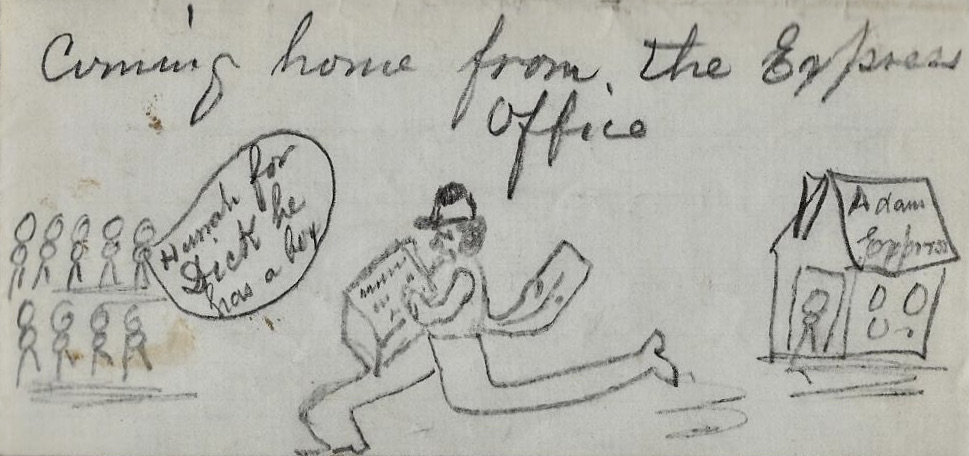 Coming home from the Express
Office
Hurrah for
Dick he
has a box
Adam
Express